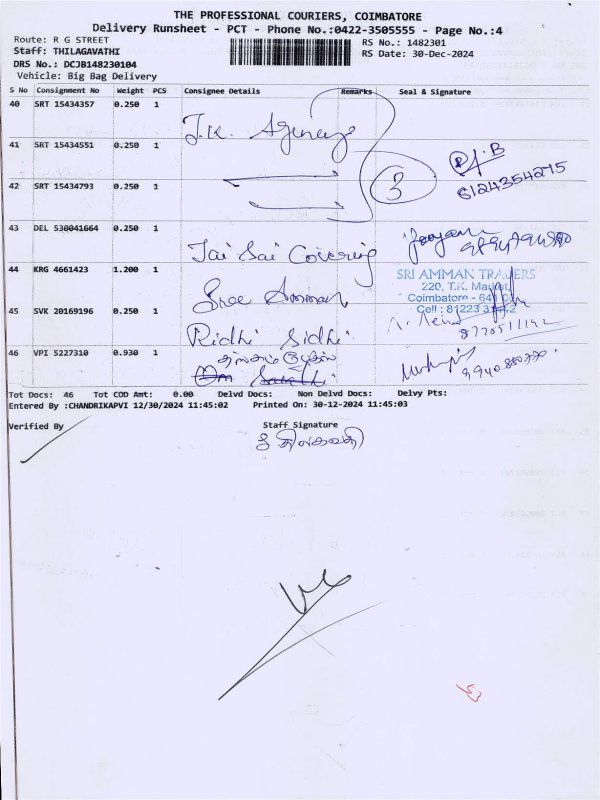 THE PROFESSIONAL COURIERS, COIMBATORE
Delivery Runsheet - PCT - Phone No.:0422-3505555 - Page No.:4
Route: R G STREET
RS No.: 1482301
Staff: THILAGAVATHI
RS Date: 30-Dec-2024
DRS No.: DCJB148230104
Vehicle: Big Bag Delivery
S No Consignment No Weight PCS Consignee Details Remarks Seal & Signature
40 SRT 15434357 0.250 1 J.K. Agency
41 SRT 15434551 0.250 1
42 SRT 15434793 0.250 1 3
43 DEL 530041664 0.250 1 Jai Sai Covering
44 KRG 4661423 1.200 1 Sree Amman
SRI AMMAN TRADERS
220, T.K. Market,
Coimbatore - 641 001
45 SVK 20169196 0.250 1 Ridhi Sidhi
46 VPI 5227310 0.930 1
Tot Docs: 46 Tot COD Amt: 0.00 Delvd Docs: Non Delvd Docs: Delvy Pts:
Entered By :CHANDRIKAPVI 12/30/2024 11:45:02 Printed On: 30-12-2024 11:45:03
Verified By Staff Signature